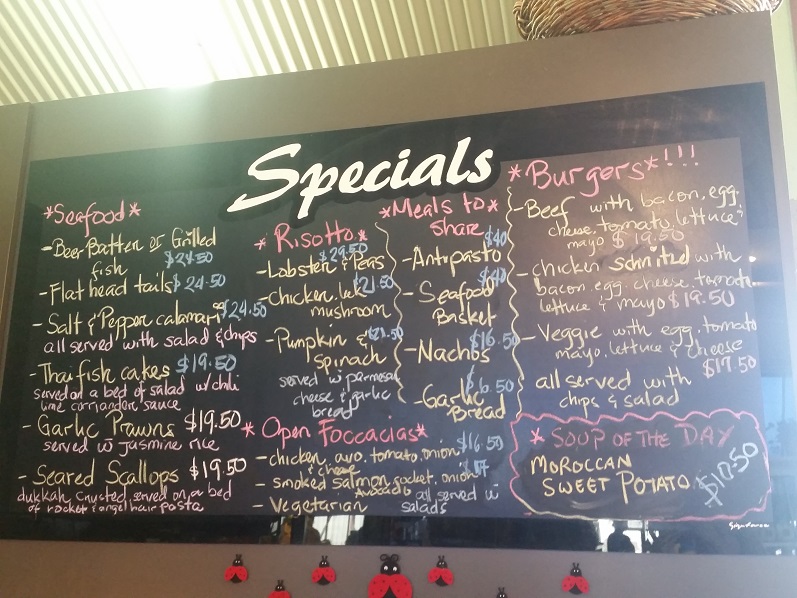 Specials
*Seafood*
-Beer Batter or Grilled
fish $24.50
-Flat head tails $24.50
-Salt & Pepper calamari $24.50
all served with salad & chips
-Thai fish cakes $19.50
served on a bed of salad w/ chili
lime corriander sauce
-Garlic Prawns $19.50
served w Jasmine rice
-Seared Scallops $19.50
dukkah crusted, served on a bed
of rocket & angel hair pasta
*Risotto*
$29.50
-Lobster & Peas
-Chicken, leek $21.50
mushroom
-Pumpkin & $21.50
spinach
served w parmesan
cheese & garlic
bread
*Open Foccacias*
-chicken, avo, tomato, onion $16.50
& cheese
-smoked salmon, rocket, onion $17
Avocado all served w
-Vegetarian salads
*Meals to*
share
$40
-Antipasto
$40
-Seafood
Basket
$16.50
-Nachos
$6.50
-Garlic
Bread
*Burgers*!!!
-Beef with bacon, egg,
cheese, tomato, lettuce,
mayo $19.50
-chicken schnitzel with
bacon, egg, cheese, tomato
lettuce & mayo $19.50
-Veggie with egg, tomato
mayo, lettuce & cheese
$17.50
all served with
chips & salad
* SOUP OF THE DAY
MOROCCAN
SWEET POTATO $10.50